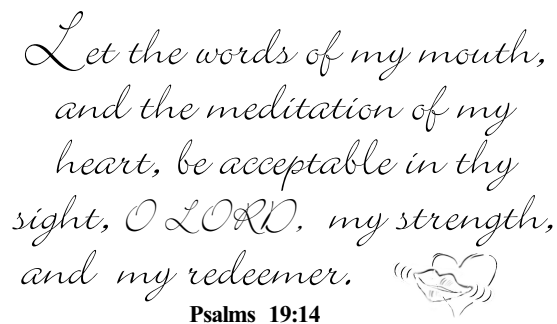 Let the words of my mouth,
and the meditation of my
heart, be acceptable in thy
sight, O LORD, my strength,
and my redeemer.
Psalms 19:14